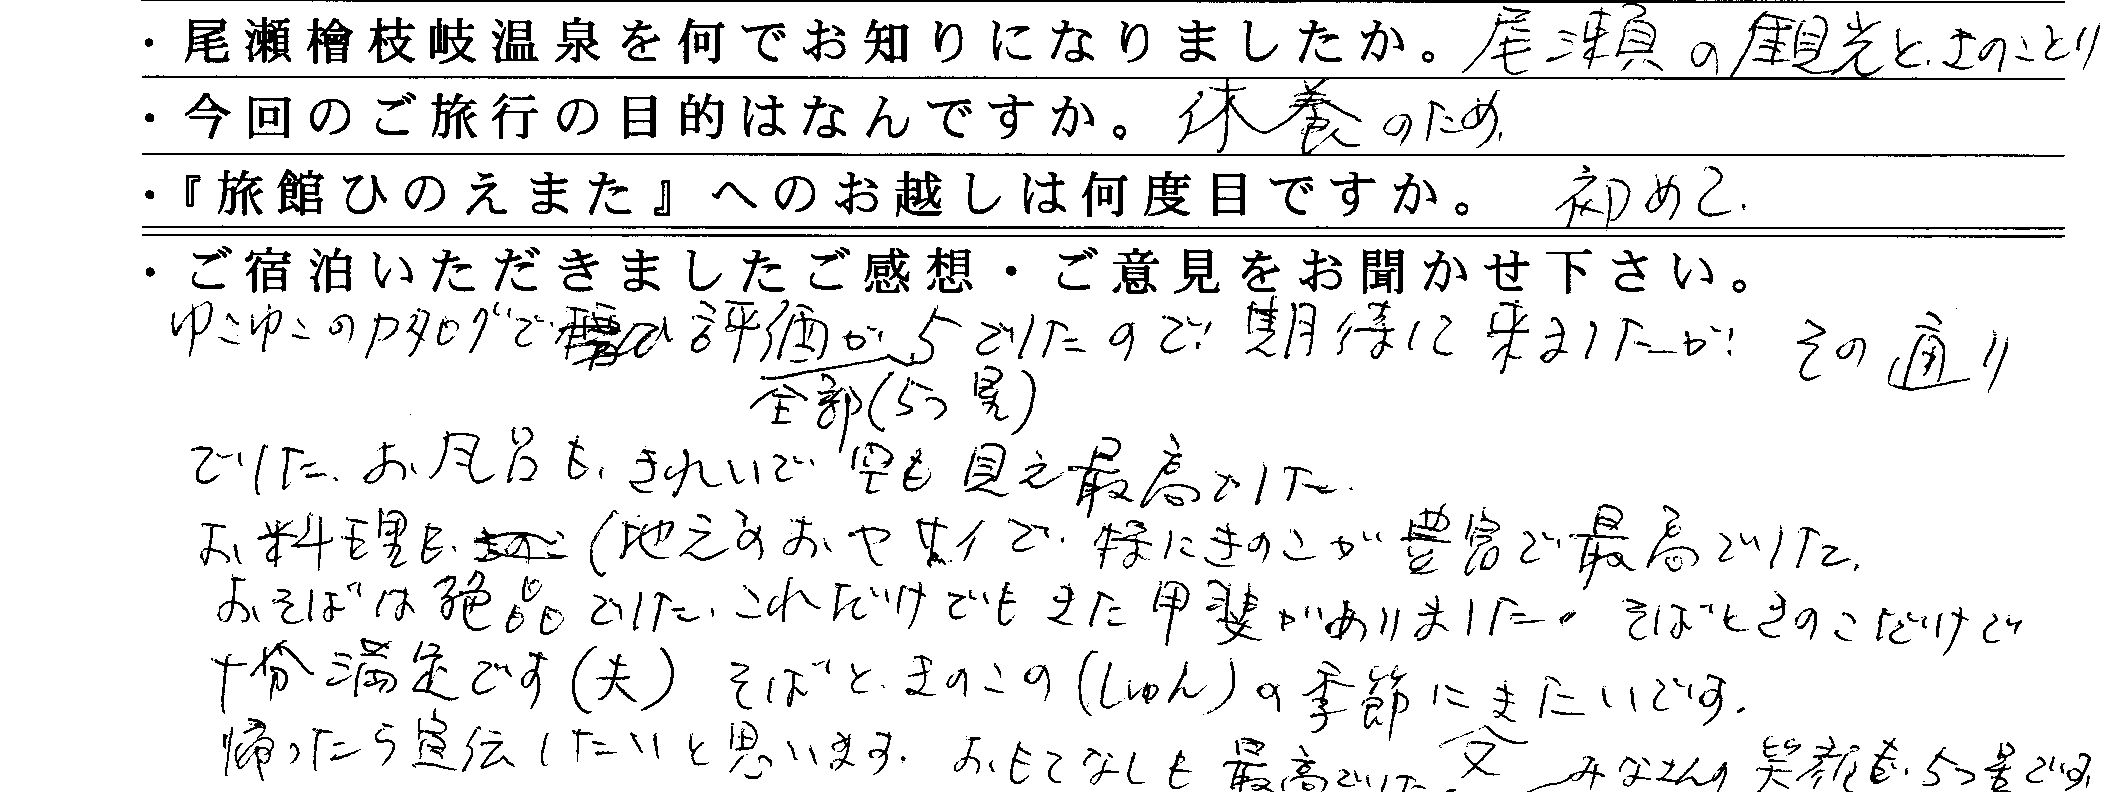 ・尾瀬檜枝岐温泉を何でお知りになりましたか。尾瀬の観光と、きのことり
・今回のご旅行の目的はなんですか。休養のため、
・『旅館ひのえまた』へのお越しは何度目ですか。 初めて、
・ご宿泊いただきましたご感想・ご意見をお聞かせ下さい。
ゆこゆこのカタログで 評価が5でしたので、期待して来ましたが、その通り
全部(5つ星)
でした、お風呂も、きれいで空も見え最高でした、
お料理も、(地元のおやサイで、特にきのこが豊富で最高でした、
おそばは絶品でした、これだけでもきた甲斐がありました。そばときのこだけで
十分満足です(夫) そばと、きのこの(しゅん)の季節にきたいです、
又
帰ったら宣伝したいと思います、おもてなしも最高でした、みなさんの笑顔も、5つ星です